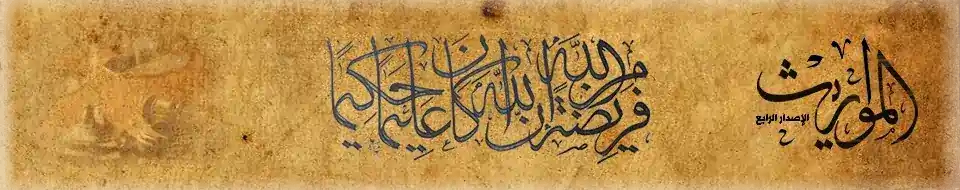 المواريث
الإصدار الرابع
فريضة من الله إن الله كان عليما حكيما